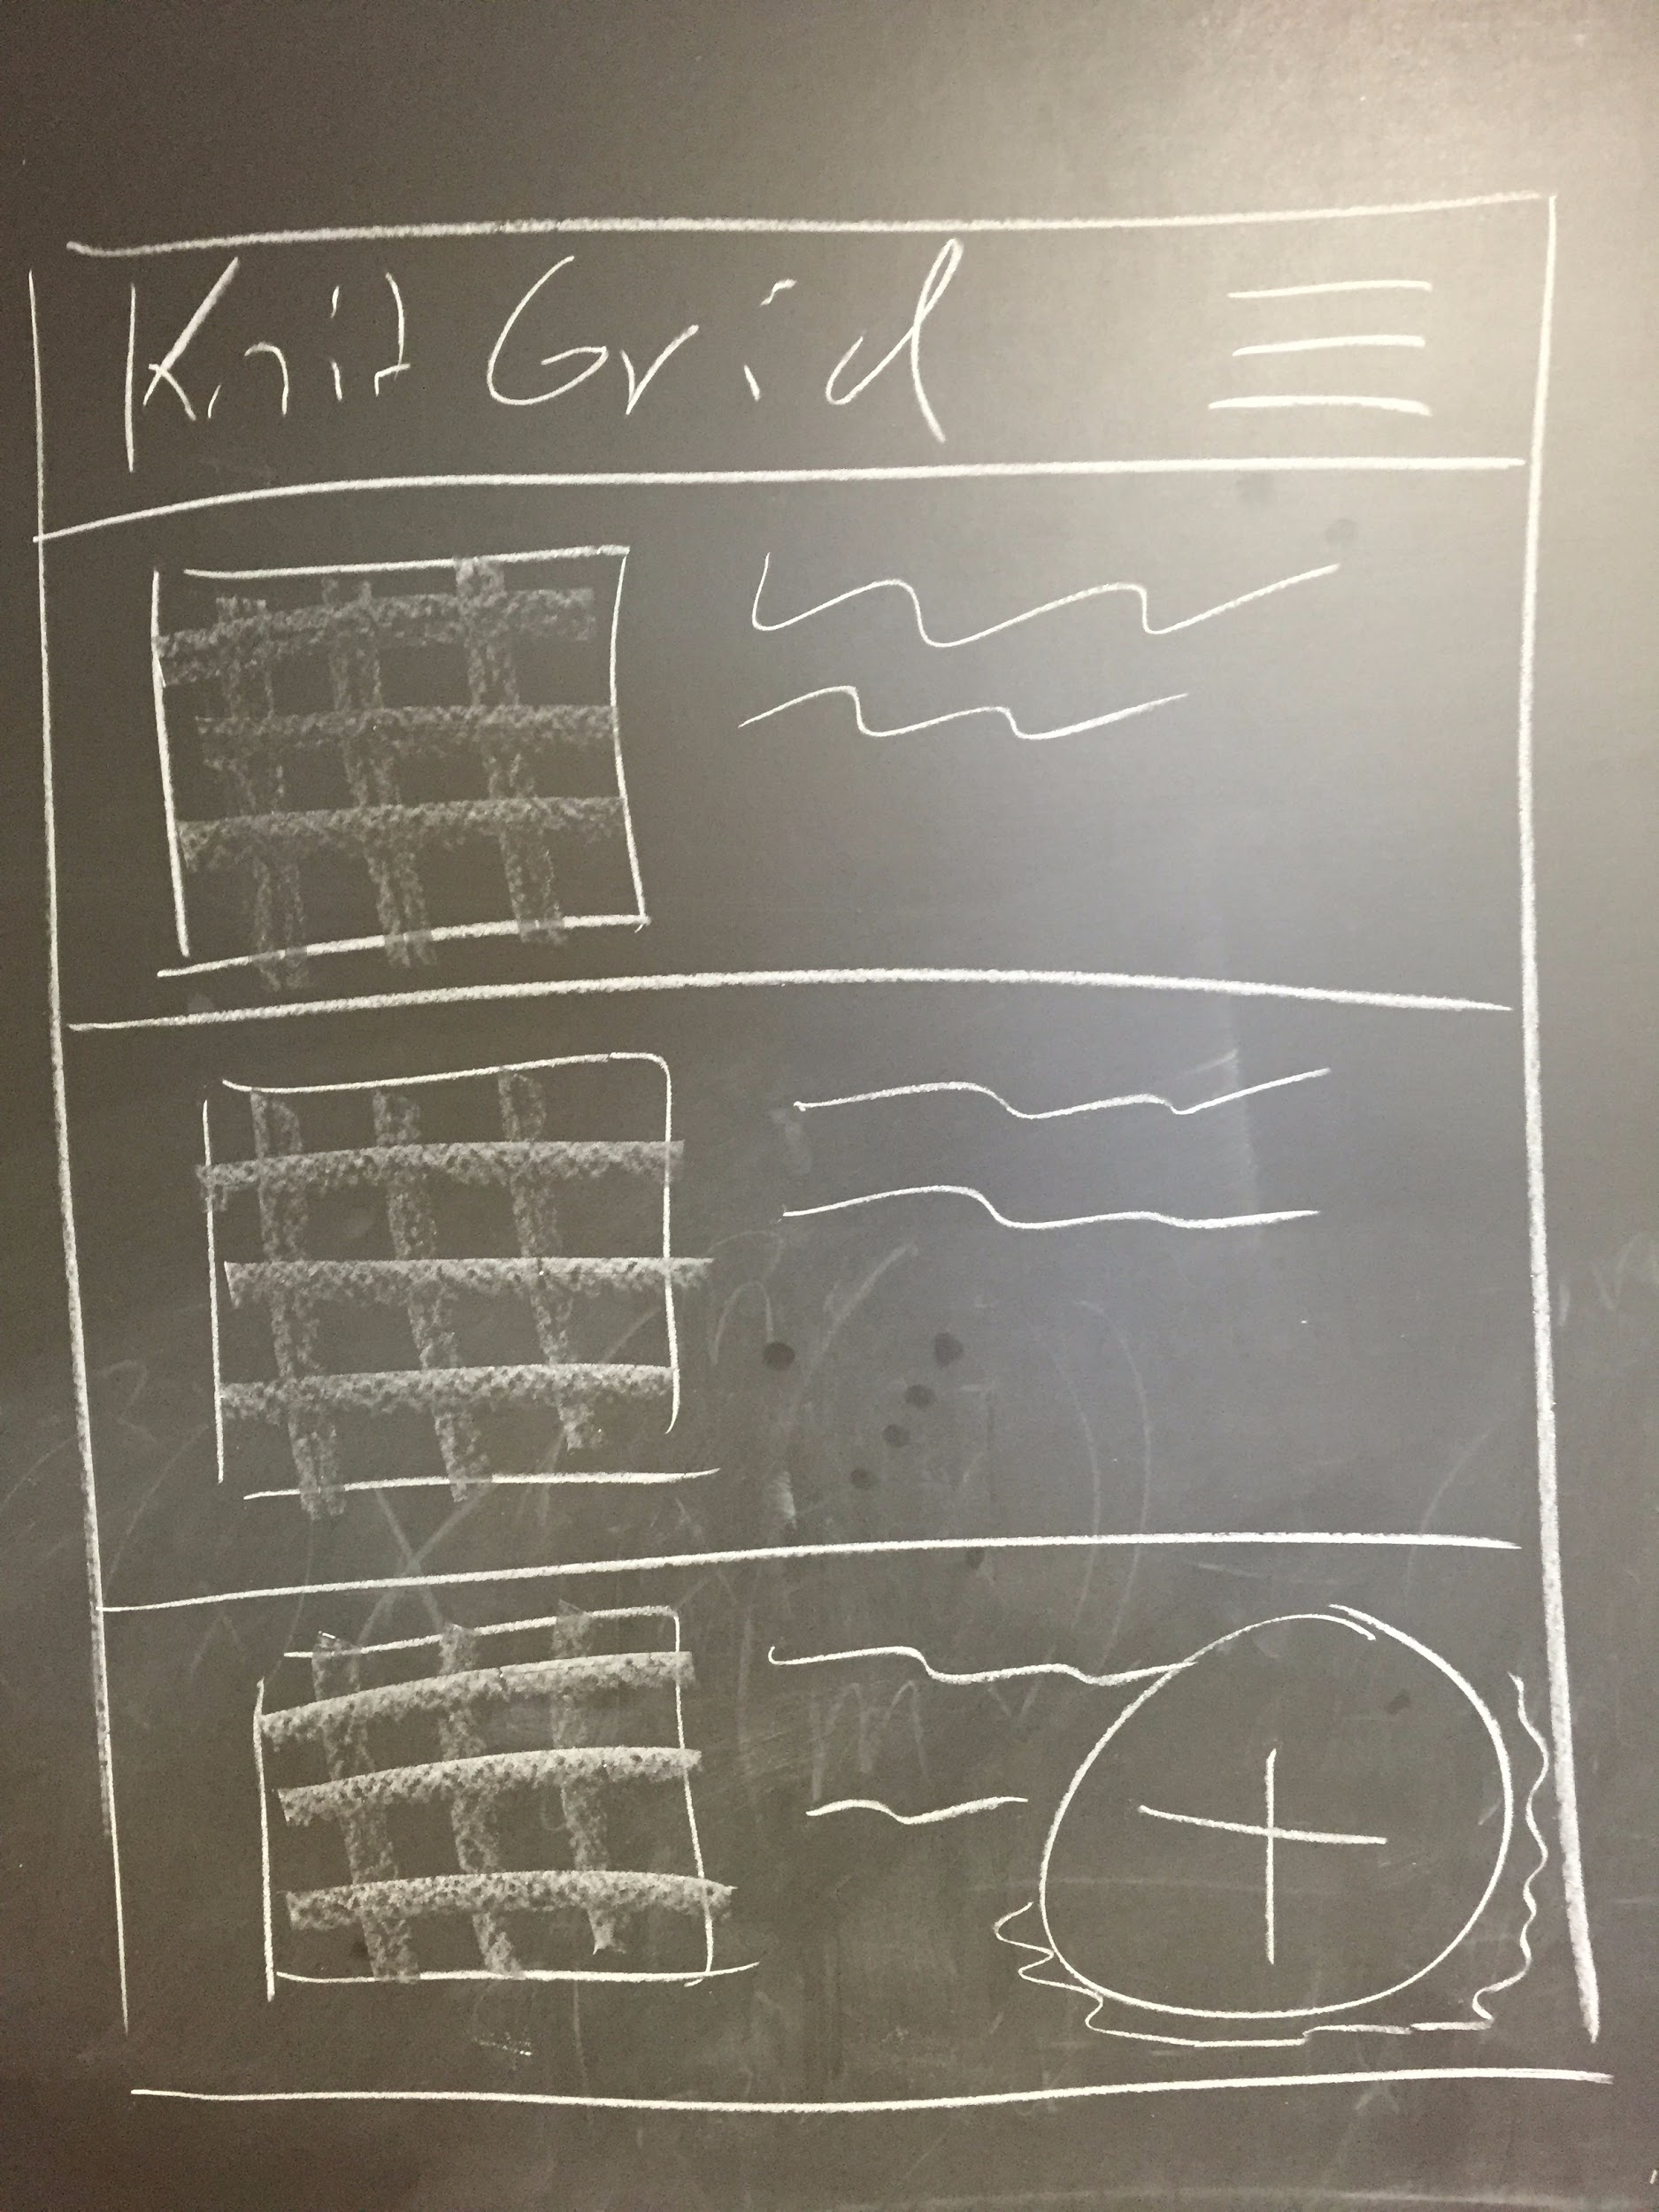 Knit Grid